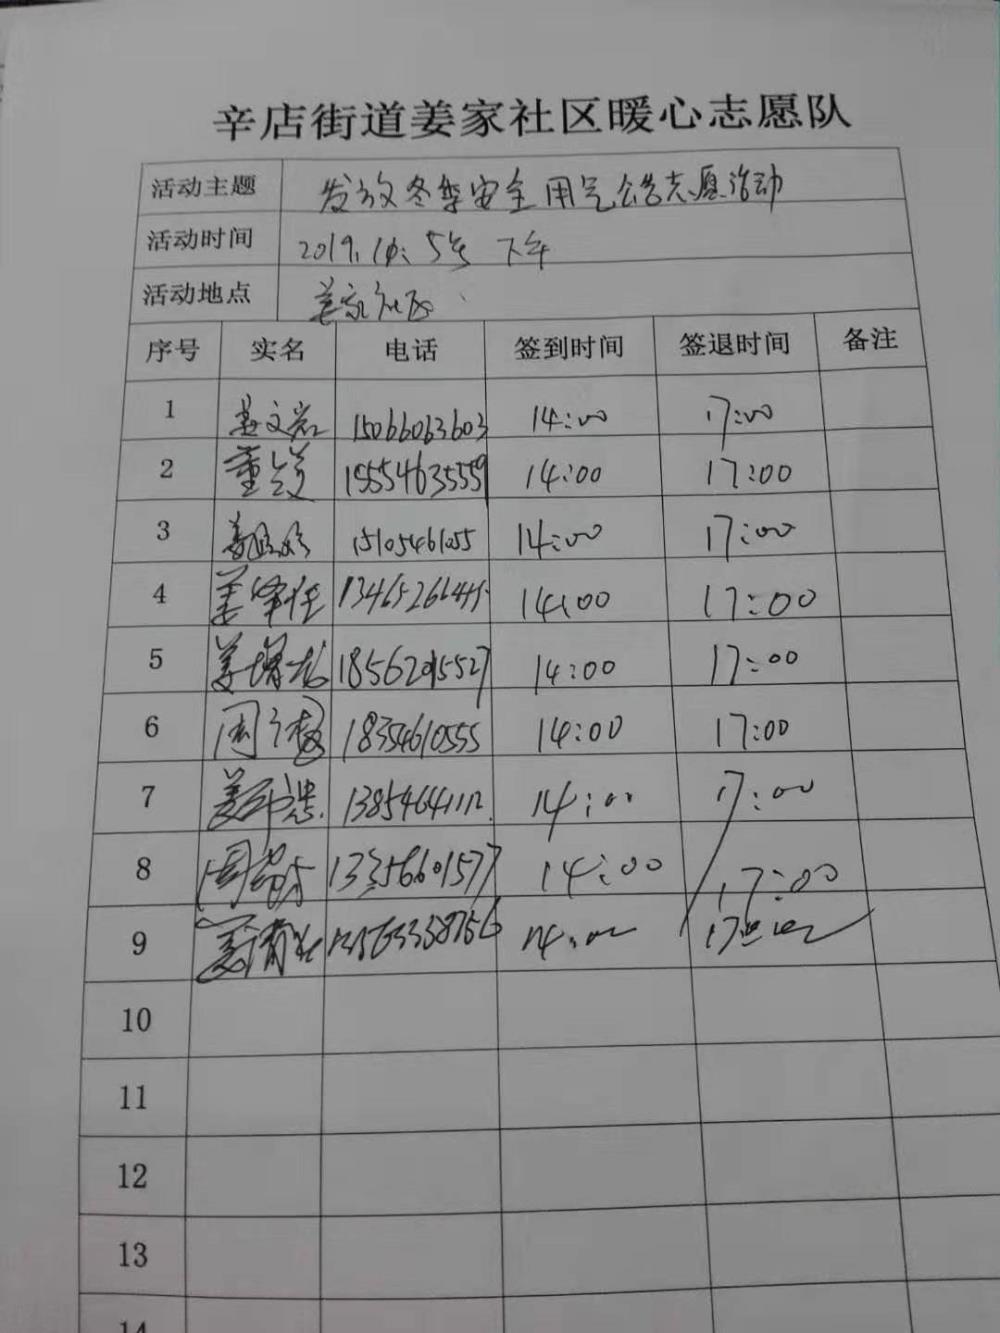 辛店街道姜家社区暖心志愿队
活动主题 发放冬季安全用气公告志愿活动
活动时间 2019. 下午
活动地点 姜家社区
序号 实名 电话 签到时间 签退时间 备注
1 姜文岩 15066063603 14:00 17:00
2 董 15554635559 14:00 17:00
3 姜 15105461055 14:00 17:00
4 姜 14:00 17:00
5 姜增 18562015527 14:00 17:00
6 周 18354610555 14:00 17:00
7 姜 14:00 17:00
8 周 13356601577 14:00 17:00
9 姜 14:00 17:00
10
11
12
13
14